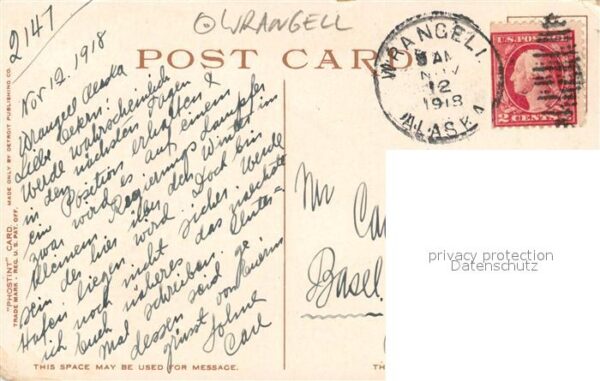 2147
⊙WRANGELL
POST CARD
WRANGELL
8 AM
NOV
12
1918
ALASKA
U.S. POSTAGE
2 CENTS 2
Nov 12. 1918
Wrangell Alaska
Liebe Eltern!
Werde wahrscheinlich
in den nächsten Tagen
eine Position erhalten &
zwar wird es auf einem
kleinem Regierungs Dampfer
sein der hier über den Winter im
Hafen liegen wird. Doch bin
ich noch nicht sicher. Werde
Euch näheres das nächste
mal schreiben. Unter-
dessen seid ge
grüsst von Eurem
Sohne
Carl
Mr Ca
Basel.
privacy protection
Datenschutz
"PHOSTINT" CARD.
TRADE MARK - REG. U.S. PAT. OFF.
MADE ONLY BY DETROIT PUBLISHING CO.
THIS SPACE MAY BE USED FOR MESSAGE.
TH